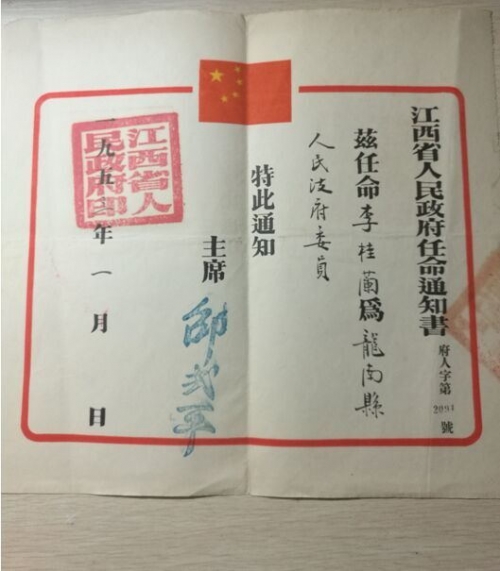 江西省人民政府任命通知書
府人字第2091號
茲任命李桂蘭爲龍南縣
人民政府委員
特此通知
主席
邵式平
一九五三年一月 日
江西省人民政府印